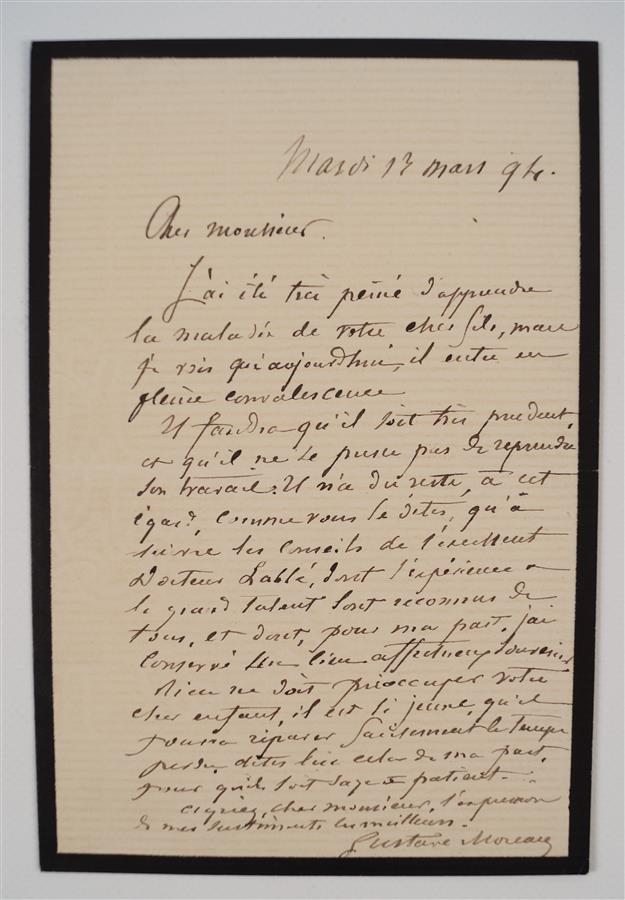 Mardi 13 mars 94.
Cher monsieur.
J'ai été très peiné d'apprendre
la maladie de votre cher fils, mais
je vois qu'aujourd'hui, il entre en
pleine convalescence
Il faudra qu'il soit très prudent,
et qu'il ne se presse pas de reprendre
son travail. Il n'a du reste, à cet
égard, comme vous le dites, qu'à
suivre les conseils de l'excellent
Docteur Labbé, dont l'expérience et
le grand talent sont reconnus de
tous, et dont, pour ma part, j'ai
conservé un bien affectueux souvenir
Rien ne doit préoccuper votre
cher enfant, il est si jeune, qu'il
pourra réparer facilement le temps
perdu, dites lui cela de ma part,
pour qu'il soit sage et patient.
Agréez, cher monsieur, l'expression
de mes sentiments les meilleurs.
Gustave Moreau